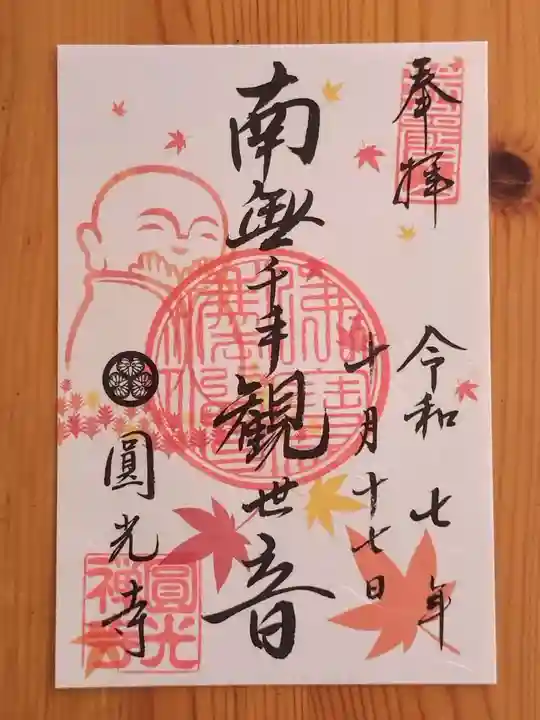 奉拝
令和七年
十月十七日
南無千手觀世音
圓光寺
圓光
禅寺